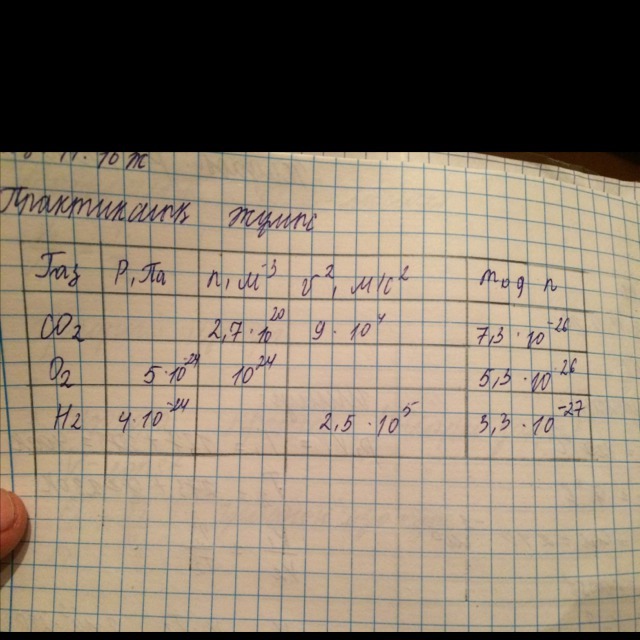 Практикалық жұмыс
Газ P, Па n, м⁻³ v², м/с² m₀, g n
CO₂ 2,7·10²⁰ 9·10⁴ 7,3·10⁻²⁶
O₂ 5·10⁻²⁴ 10²⁴ 5,3·10⁻²⁶
H₂ 4·10⁻²⁴ 2,5·10⁵ 3,3·10⁻²⁷